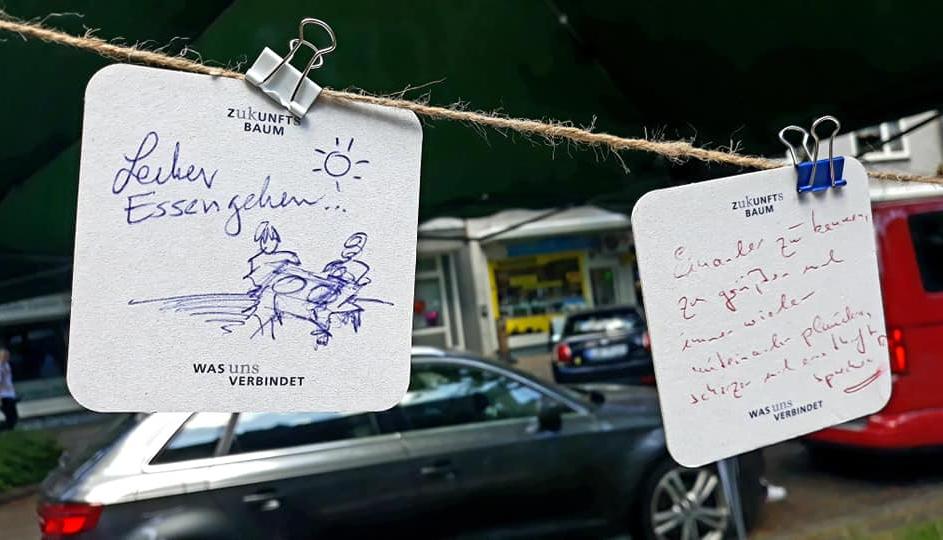 ZukUNFTs
BAUM
Lecker
Essen gehen...
WAS uns
VERBINDET
ZukUNFTs
BAUM
Einander zu kennen,
zu grüßen und
immer wieder
miteinander plaudern,
scherzen und ernsthaft
sprechen
WAS uns
VERBINDET